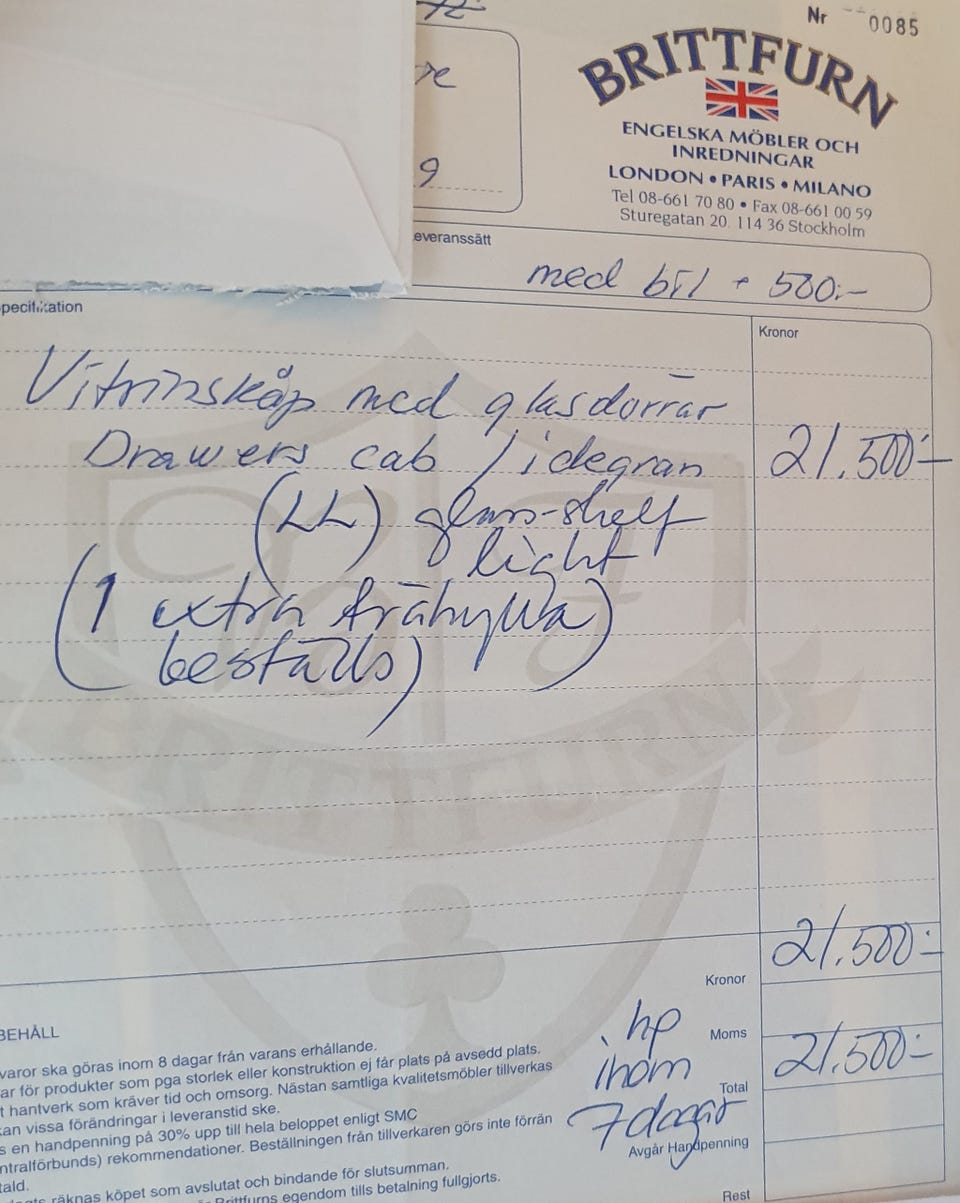 Nr 0085
re
9
BRITTFURN
ENGELSKA MÖBLER OCH
INREDNINGAR
LONDON • PARIS • MILANO
Tel 08-661 70 80 • Fax 08-661 00 59
Sturegatan 20. 114 36 Stockholm
everanssätt
med bil + 500:-
pecifikation
Kronor
Vitrinskåp med glasdörrar
Drawers cab / idegran 21.500:-
(LL) glass-shelf
light
(1 extra trähylla)
beställs)
BRITTFURN
21.500:-
Kronor
BEHÅLL
hp
Moms
varor ska göras inom 8 dagar från varans erhållande.
ar för produkter som pga storlek eller konstruktion ej får plats på avsedd plats.
inom
21.500:-
t hantverk som kräver tid och omsorg. Nästan samtliga kvalitetsmöbler tillverkas
Total
kan vissa förändringar i leveranstid ske.
7 dagar
s en handpenning på 30% upp till hela beloppet enligt SMC
ntralförbunds) rekommendationer. Beställningen från tillverkaren görs inte förrän
Avgår Handpenning
tald.
räknas köpet som avslutat och bindande för slutsumman.
Brittfurns egendom tills betalning fullgjorts.
Rest